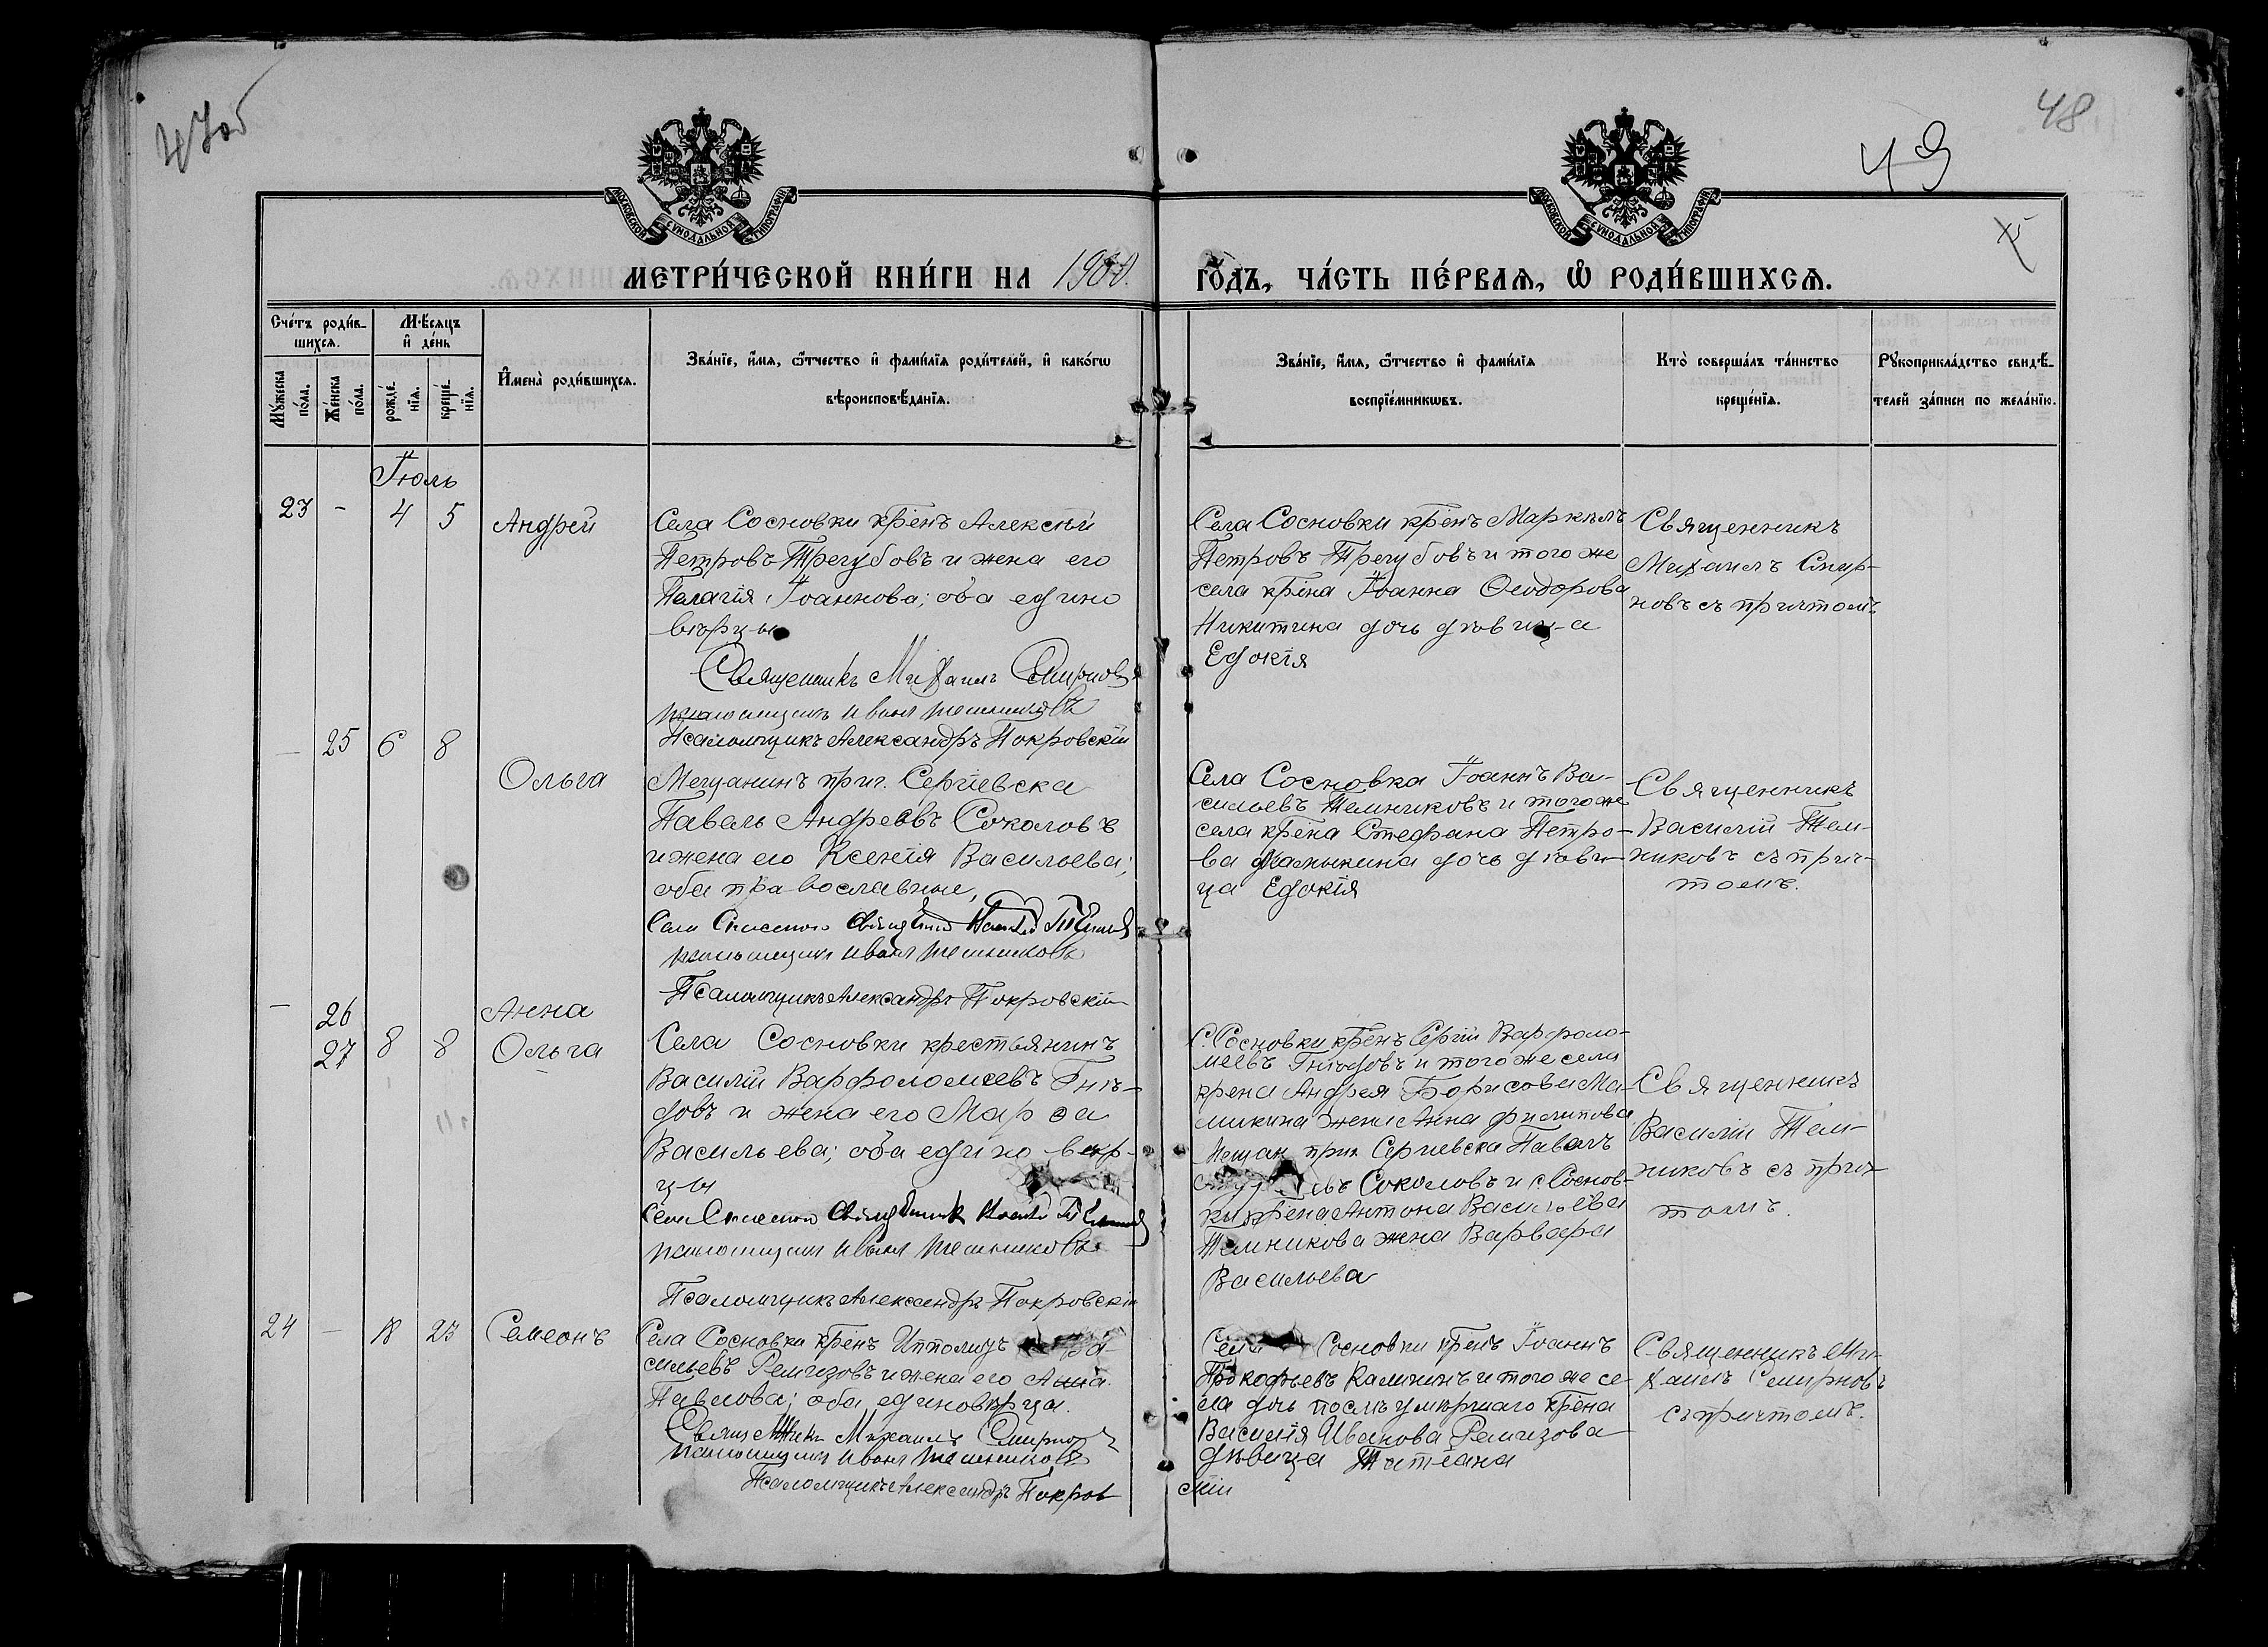 47об
48
49
МОСКОВСКОЙ СѴНОДАЛЬНОЙ ТИПОГРАФІИ
МОСКОВСКОЙ СѴНОДАЛЬНОЙ ТИПОГРАФІИ
МЕТРИ́ЧЕСКОЙ КНИ́ГИ НА 1900
ГО́ДЪ, ЧА́СТЬ ПЕ́РВАѦ, Ѽ РОДИ́ВШИХСѦ.
Сче́тъ роди́в-
шихсѧ.
Мѣ́сѧцъ
и҆ де́нь
Мꙋ́жеска
по́ла.
Же́нска
по́ла.
рожде́-
нїѧ.
креще́-
нїѧ.
И҆мена̀ роди́вшихсѧ.
Зва́нїе, и҆́мѧ, ѻ҆́тчество и҆ фами́лїѧ роди́телей, и҆ како́гѡ
вѣроисповѣ́данїѧ.
Зва́нїе, и҆́мѧ, ѻ҆́тчество и҆ фами́лїѧ
воспрїе́мникѡвъ.
Кто̀ соверша́лъ та́инство
креще́нїѧ.
Рꙋкоприкла́дство свидѣ́-
телей за́писи по жела́нїю.
Іюль
23 - 4 5 Андрей
Села Сосновки крѣнъ Алексѣй
Петровъ Трегубовъ и жена его
Пелагія Іоаннова; оба едино
вѣрцы
Священникъ Михаилъ Смирновъ
псаломщикъ Иванъ Темниковъ
Псаломщикъ Александръ Покровскій
Села Сосновки крѣнъ Маркелъ
Петровъ Трегубовъ и того же
села крѣна Іоанна Ѳеодорова
Никитина дочь дѣвица
Едокія
Священникъ
Михаилъ Смир-
новъ съ причтомъ
- 25 6 8 Ольга
Мещанинъ приг. Сергіевска
Павелъ Андреевъ Соколовъ
и жена его Ксенія Васильева;
оба православные,
псаломщикъ Иванъ Темниковъ
Псаломщикъ Александръ Покровскій
Села Сосновка Іоаннъ Ва-
сильевъ Темниковъ и того же
села крѣна Стефана Петро-
ва дочь дѣви-
ца Едокія
Священникъ
Василій Тем-
никовъ съ прич-
томъ.
- 26 Анна
27 8 8 Ольга
Села Сосновки крестьянинъ
Василій Варфоломеевъ Гнѣ-
довъ и жена его Марѳа
Васильева; оба едино вѣр-
цы
псаломщикъ Иванъ Темниковъ
Псаломщикъ Александръ Покровскій
С. Сосновки крѣнъ Сергій Варфоло-
меевъ Гнѣдовъ и того же села
крена Андрея Борисова Ма-
микина жена Анна Филипова
Мещан приг. Сергиевска Павелъ
Соколовъ и с Соснов-
ки крѣна Антона Васильева
Темникова жена Варвара
Васильева
Священникъ
Василій Тем-
никовъ съ прич-
томъ.
24 - 18 23 Семеонъ
Села Сосновки крѣнъ Ипполитъ Ва-
сильевъ Ремизовъ и жена его Анна
Павлова; оба единовѣрца.
Священникъ Михаилъ Смирновъ
псаломщикъ Иванъ Темниковъ
Псаломщикъ Александръ Покров
скій
Села Сосновки крѣнъ Іоаннъ
Прокофьевъ Калининъ и того же се-
ла дочь послѣ умершаго крѣна
Василія Иванова Ремизова
дѣвица Татіана
Священникъ Ми-
хаилъ Смирновъ
съ причтомъ.